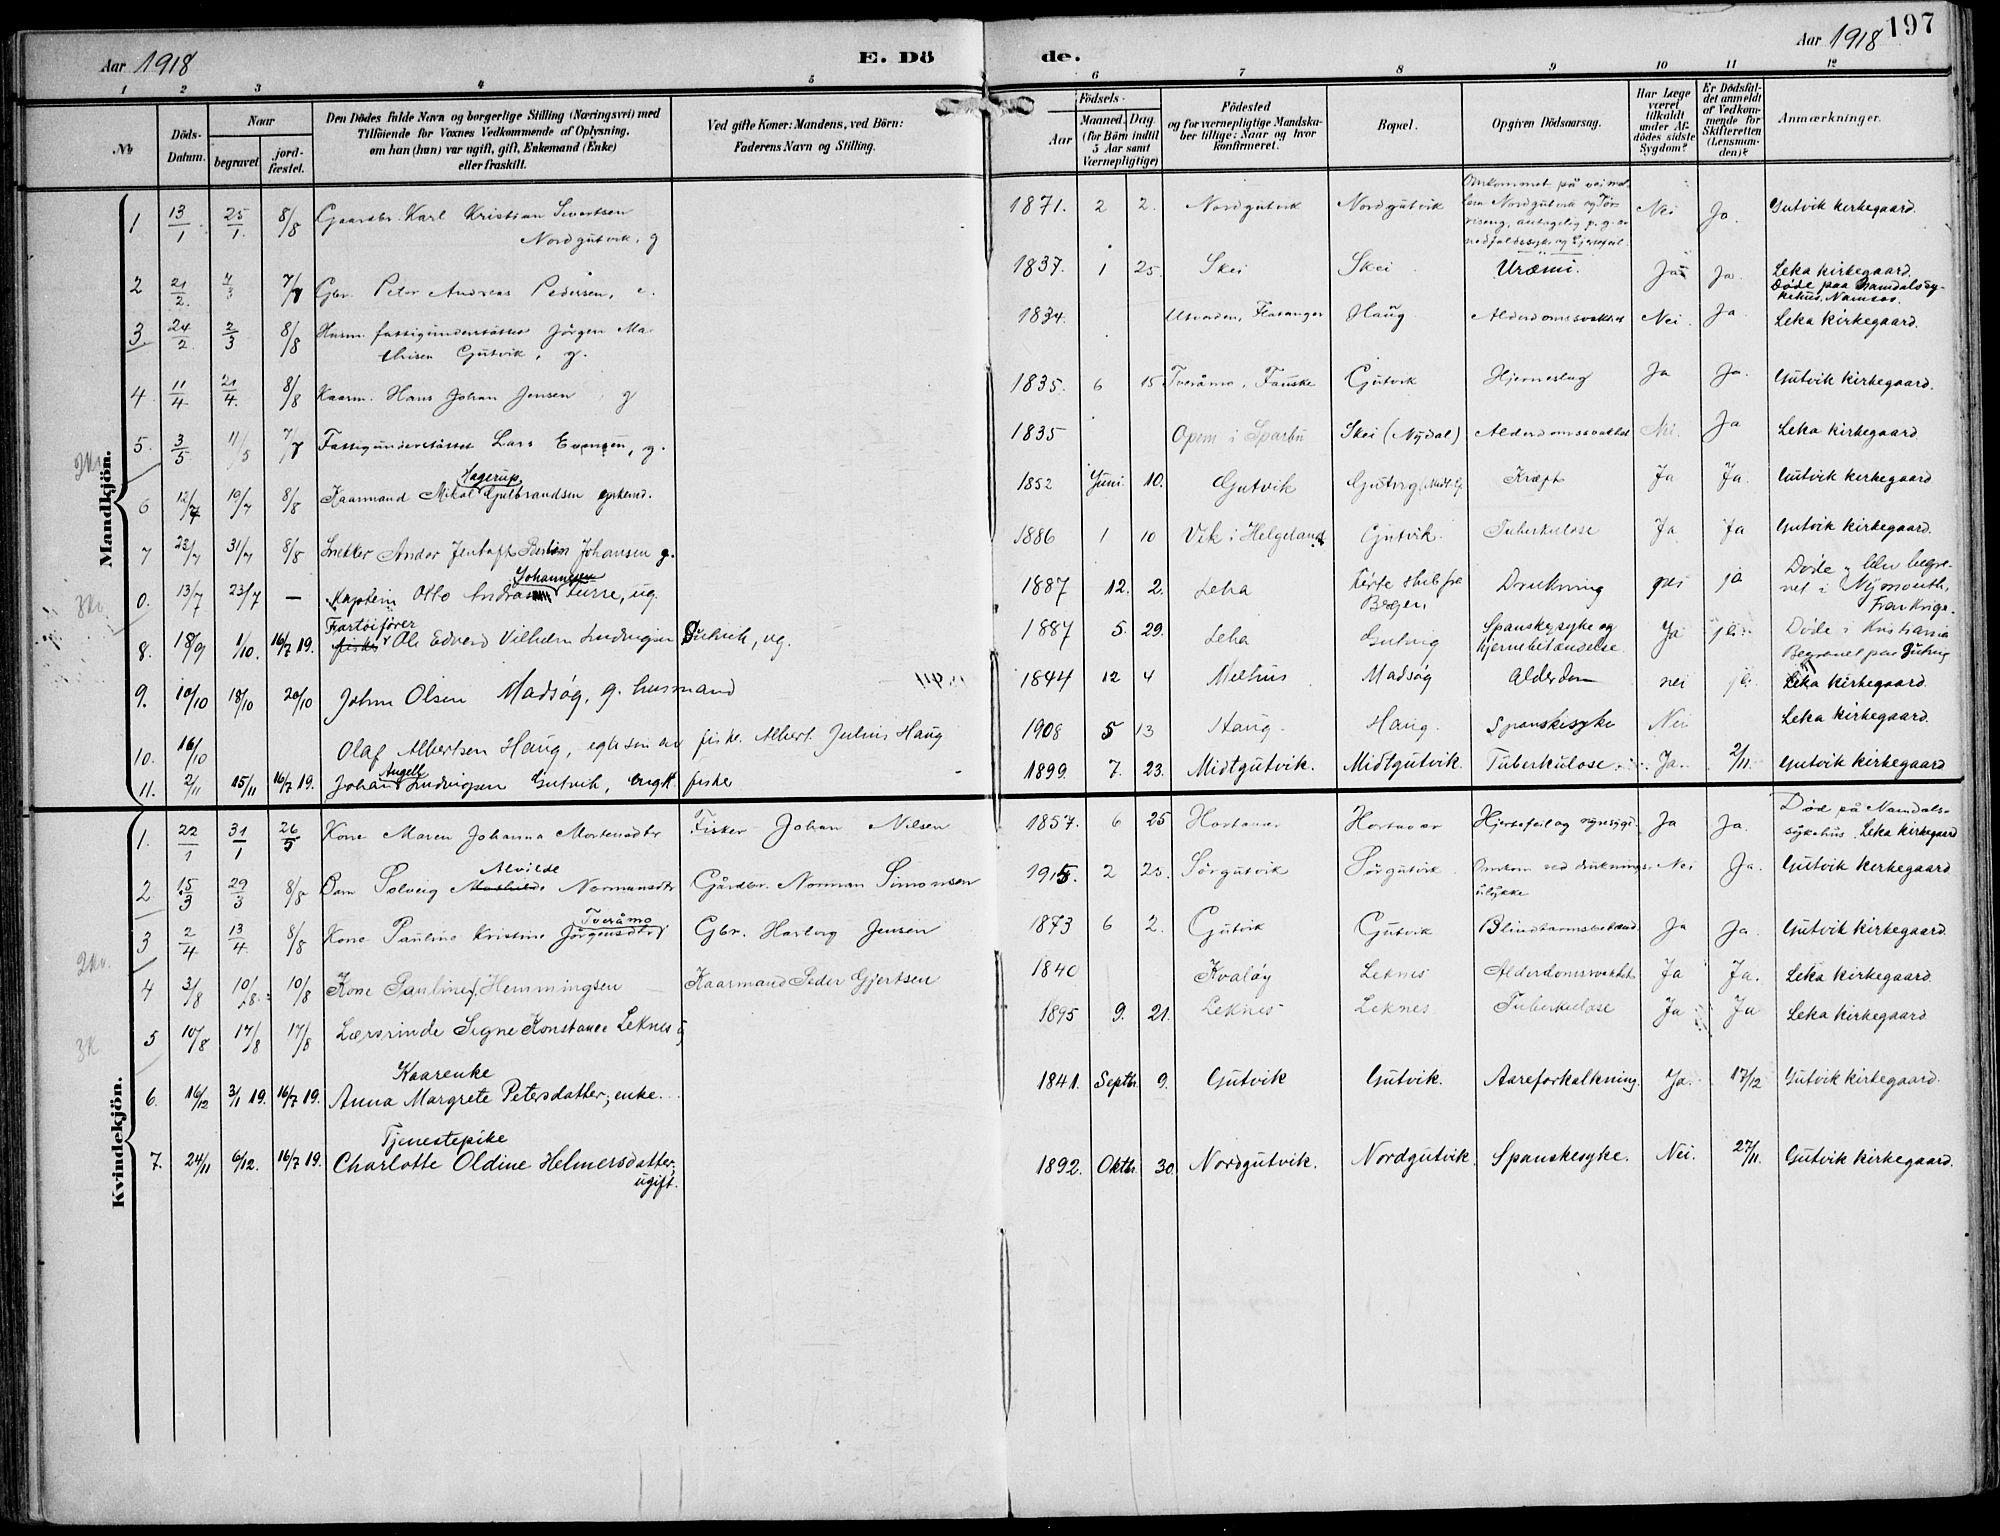 Aar 1918 E. Dö de. Aar 1918 197
1 2 3 4 5 6 7 8 9 10 11 12
№ Döds-Datum. Naar begravet jordfæstet. Den Dödes fulde Navn og borgerlige Stilling (Næringsvei) med Tilföiende for Voxnes Vedkommende af Oplysning, om han (hun) var ugift, gift, Enkemand (Enke) eller fraskilt. Ved gifte Koner: Mandens, ved Börn: Faderens Navn og Stilling. Födsels- Aar Maaned. Dag. (for Börn indtil 5 Aar samt Værnepligtige) Födested og for værnepligtige Mandskaber tillige: Naar og hvor konfirmeret. Bopæl. Opgiven Dödsaarsag. Har Læge været tilkaldt under Afdödes sidste Sygdom? Er Dödsfaldet anmeldt af Vedkommende for Skifteretten (Lensmanden)? Anmærkninger.
Mandkjön.
1 13/1 25/1 8/8 Gaardbr. Karl Kristian Sivertsen Nordgutvik, g 1871. 2 2. Nordgutvik Nordgutvik Omkommet på vei mellem Nordgutvik og antagelig p. g. av nedfaldssyke og hjertefeil. Nei Ja. Gutvik kirkegaard.
2 21/2. 4/3 7/7 Gbr. Peter Andreas Pedersen, e. 1837. 1 25. Skei Skei Uræmi. Ja Ja. Leka kirkegaard. Döde paa Namdalssykehus, Namsos.
3 24/2 2/3 8/8 Husm. fattigunderstöttet Jörgen Mathisen Gutvik, g. 1834. Utvorden, Flatanger Haug Alderdomssvakhet Nei. Ja Leka kirkegaard.
4 11/4 21/4. 8/8 Kaarm. Hans Johan Jensen, g 1835. 6 15 Tveråmo, Fauske Gutvik Hjerneslag Ja Ja. Gutvik kirkegaard.
5. 3/5 11/5 7/7 Fattigunderstöttet Lars Evensen, g. 1835 Opem i Sparbu Skei (Nydal) Alderdomssvakhet Nei. Ja Leka kirkegaard
2kv.
6 12/7 19/7 8/8 Kaarmand Mikal Hagerup Gulbrandsen enkemd. 1852 Juni 10. Gutvik Gutvig, Kræft Ja Ja. Gutvik kirkegaard
7 23/7 31/7 8/8 Snekker Andor Jentoft Johansen g. 1886 1 10 Vik i Helgeland Gutvik. Tuberkulose Ja Ja Gutvik kirkegaard.
3kv.
0. 13/7 23/7 — Kaptein Otto Johannesen Turre, ug. 1887 12. 2. Leka Bergen, Drukning nei ja Döde og blev begravet i Frankrige.
8. 18/9 1/10. 16/7 19. Fartöiförer Ole Edvard Vilhelm Ludvigsen Gutvik, ug. 1887 5. 29. Leka Gutvig Spanskesyke og hjernebetændelse. Ja ja. Döde i Kristiania Begravet paa Gutvig
9. 10/10 18/10 20/10 Johan Olsen Madsøg, g. husmand 1844 12 4 Melhus Madsøg Alderdom nei ja. Leka kirkegaard.
10. 16/10 Olaf Albertsen Haug, egte sön av fisk. Albert Julius Haug 1908 5 13 Haug. Haug. Spanskesyke Nei Leka kirkegaard.
11. 2/11 15/11 16/7 19. Johan Angell Ludvigsen Gutvik, ungk. fisker 1899. 7. 23. Midtgutvik. Midtgutvik. Tuberkulose. Ja. 2/11. Gutvik kirkegaard
Kvindekjön.
1. 22/1 31/1 26/5 Kone Maren Johanna Mortensdtr Fisker Johan Nilsen 1857. 6 25 Hortavær Hortavær Hjertefeil og nyresyge. Ja Ja. Död på Namdalssykehus. Leka kirkegaard
2 15/3 29/3 8/8 Barn Solveig Alvilde Normansdtr Gårdbr. Norman Simonsen 1915. 2 25. Sörgutvik Sörgutvik Omkom ved drukningsulykke Nei Ja. Gutvik kirkegaard
3 2/4 13/4 8/8 Kone Pauline Kristine Tveråmo Jörgensdtr Gbr. Hartvig Jensen 1873 6 2. Gutvik Gutvik Blindtarmsbetænd. Ja Ja. Gutvik kirkegaard.
2kv.
4 3/8 10/8. 10/8 Kone Pauline Hemmingsen Kaarmand Peder Gjertsen 1840 Kvaløy Leknes Alderdomssvakhet Ja Ja. Leka kirkegaard.
3k
5 10/8 17/8 17/8 Lærerinde Signe Konstance Leknes 1895 9. 21. Leknes Leknes Tuberkulose Ja Ja Leka kirkegaard.
6. 16/12 3/1 19. 16/7 19. Kaarenke Anna Margrete Petersdatter, enke. 1841. Septbr. 9. Gutvik Gutvik. Aareforkalkning. Ja. 17/12 Gutvik kirkegaard.
7. 24/11 6/12. 16/7 19. Tjenestepike Charlotte Oldine Helmersdatter, ugift. 1892. Oktbr. 30. Nordgutvik. Nordgutvik. Spanskesyke. Nei. 27/11. Gutvik kirkegaard.